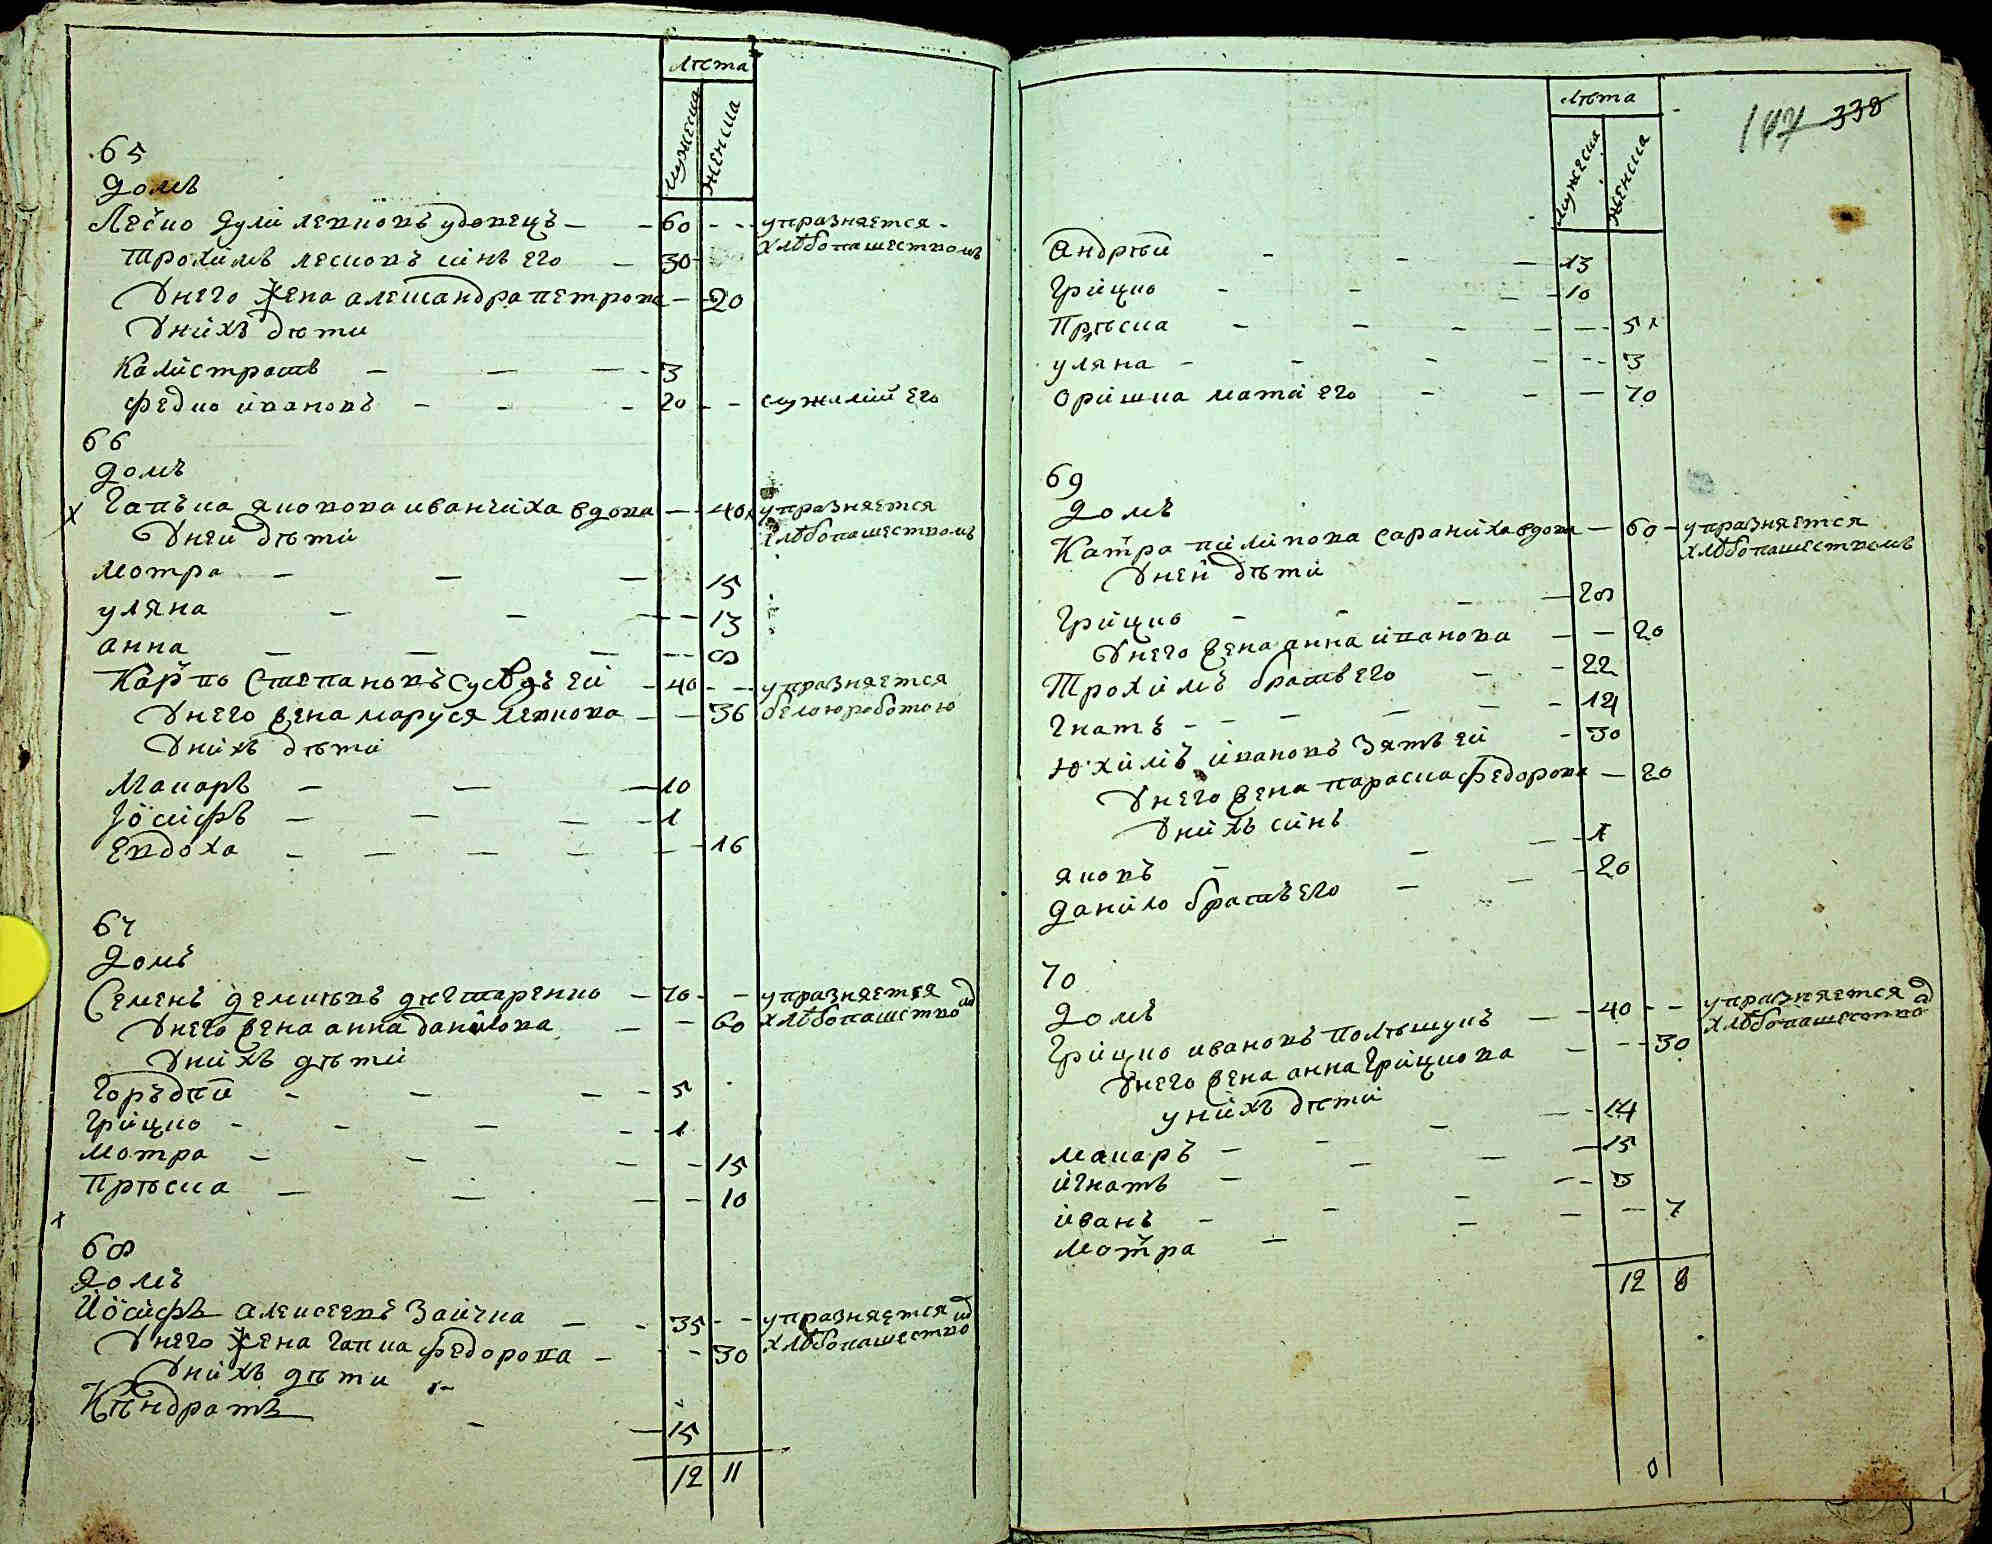 лѣта
мужеска
женска
65
домъ
Леско Дули левковъ удовецъ — — 60 - - упразняется
хлѣбопашествомъ
Трохимъ лесковъ синъ его — 30
Унего жена александра петрова — - 20
Унихъ дѣти
Калистратъ — — — - 3
Федко ивановъ - - - 20 - - служилий его
66
домъ
х Гапъка яковова иванчиха вдова — - 40 упразняется
хлѣбопашествомъ
Уней дѣти
Мотра — — — 15
уляна — — — - 13
анна — — — - - 8
Карпо Степановъ Сусѣдъ ей - 40 - - упразняется
Унего жена маруся левкова - - 36 белою роботою
Унихъ дѣти
Макаръ — — — 10
Іосифъ — — — - 1
Евдоха — — — — — - 16
67
домъ
Семенъ демковъ дегтаренко — 70 - - упразняется
Унего жена анна данилова — - 60 хлѣбопашество
Унихъ дѣти
Горъдѣй - - — - 5
Грицко - - — - - 1
Мотра — — — - 15
Прѣска — — — - 10
х
68
домъ
Йосифъ алексеевъ Заичка — - 35 - - упразняется
хлѣбопашество
Унего жена гапка федорова — - 30
Унихъ дѣти
Кѣндратъ — — 15
12 11
лѣта
мужеска
женска
147 338
андрѣй - - — 13
Грицко - - - - 10
Прѣска — — — — - - 5
уляна - - - - - - 3
Оришка мати его — - — 70
69
домъ
Катра пилипова сараниха вдова — 60 - упразняется
хлѣбопашествомъ
Уней дѣти
Грицко - - - — 28
Унего жена анна иванова — — 20
Трохимъ братъ его - - 22
Гнатъ - - — — — - 14
Юхимъ ивановъ Зятъ ей - 30
Унего жена параска федорова — 20
Унихъ синъ
яковъ — — — - 1
данило братъ его — — - 20
70
домъ
Грицко ивановъ полѣщукъ — - 40 - - упразняется
хлѣбопашество
Унего жена анна Грицкова — - - 30
унихъ дѣти
макаръ — - — — - 14
игнатъ — — — — 15
иванъ - - - - - 8
Мотра — — — — - 7
12 8